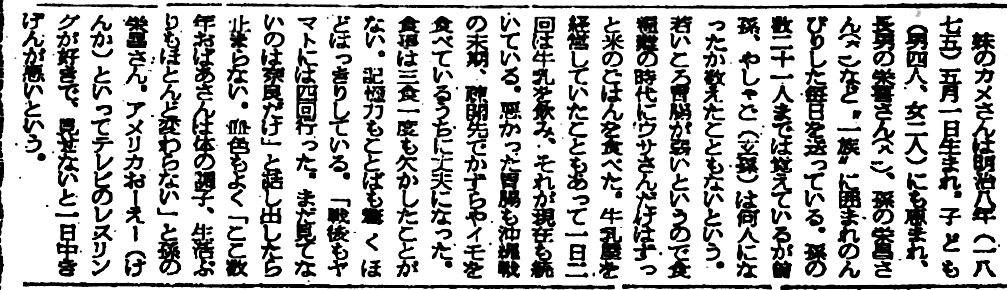 妹のカメさんは明治八年（一八
七五）五月一日生まれ。子ども
（男四人、女二人）にも恵まれ、
長男の栄 さん 、孫の栄昌さ
ん など“一族”に囲まれのん
びりした毎日を送っている。孫の
数二十一人までは覚えているが曽
孫、やしゃご（玄孫）は何人にな
ったか数えたこともないという。
若いころ胃腸が弱いというので食
糧難の時代にウサさんだけはずっ
と米のごはんを食べた。牛乳屋を
経営していたこともあって一日二
回は牛乳を飲み、それが現在も続
いている。悪かった胃腸も沖縄戦
の末期、疎開先でかずらやイモを
食べているうちに丈夫になった。
食事は三食一度も欠かしたことが
ない。記憶力もことばも驚くほ
どはっきりしている。「戦後もヤ
マトには四回行った。まだ見てな
いのは奈良だけ」と話し出したら
止まらない。血色もよく「ここ数
年おばあさんは体の調子、生活ぶ
りもほとんど変わらない」と孫の
栄昌さん。アメリカおーえー（け
んか）といってテレビのレスリン
グが好きで、見せないと一日中き
げんが悪いという。